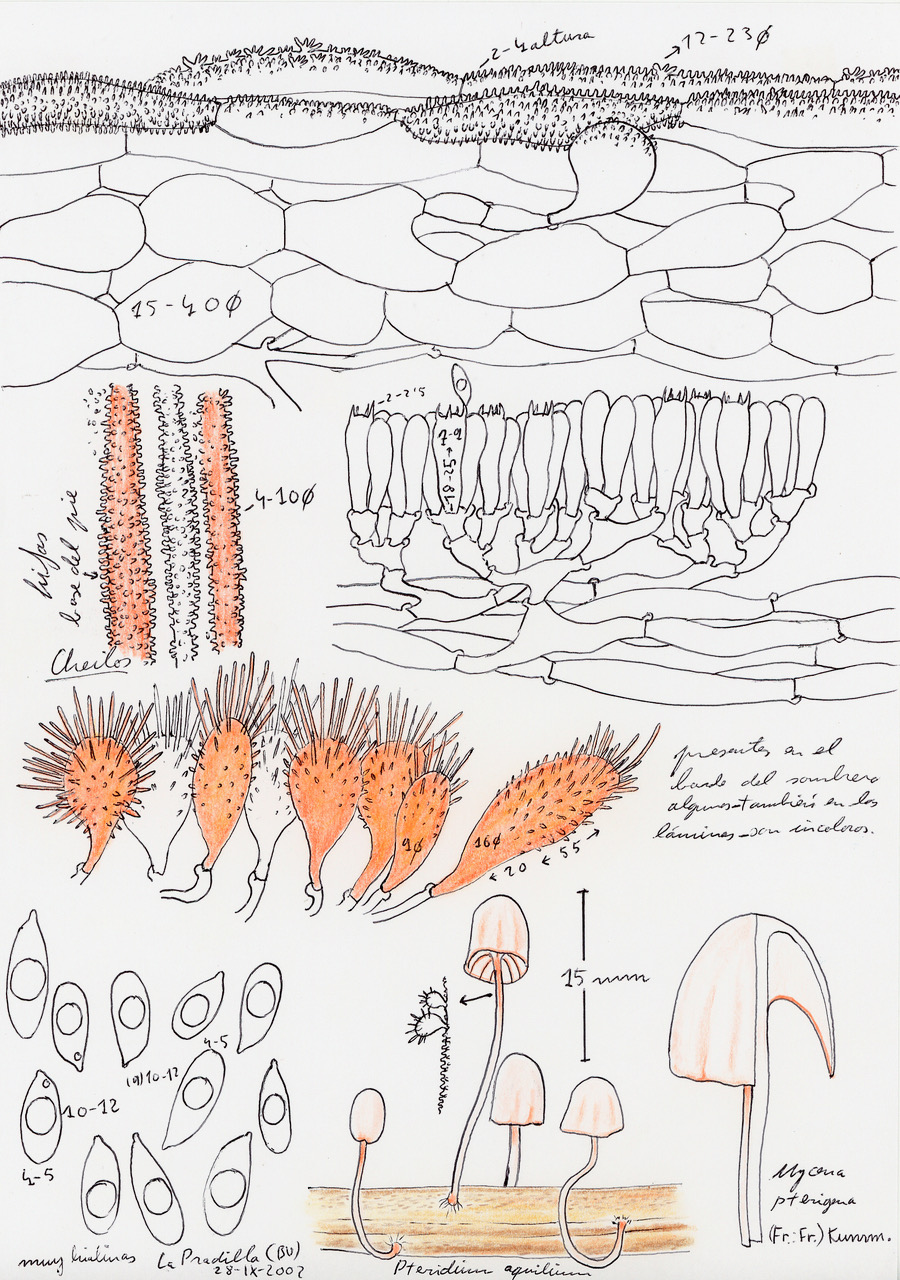 2-4 altura
12-23φ
15-40φ
2-2,5
18-25 → 7-9
4-10φ
hifas
base del pie
Cheilos
presentes en el
borde del sombrero
algunos también en las
láminas son incoloros.
9φ
16φ
← 20 ← 55 →
15 mm
4-5
(9)10-12
10-12
4-5
muy hialinas
La Pradilla (BU)
28-IX-2002
Pteridium aquilinum
Mycena
pterigena
(Fr.: Fr.) Kumm.